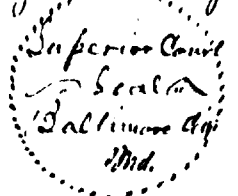 Superior Court
Seal
Baltimore City
Md.